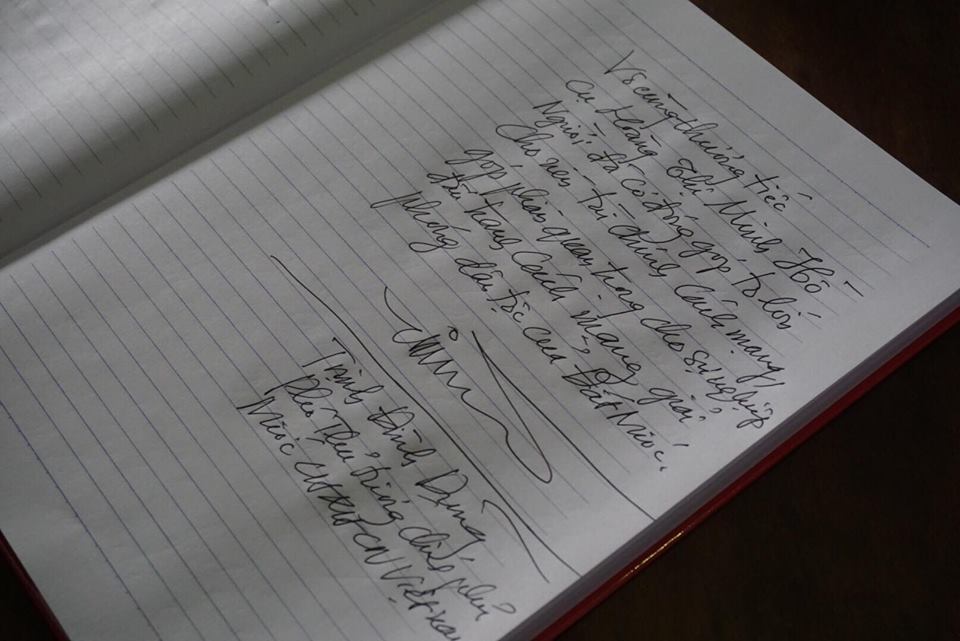 Vô cùng thương tiếc
Cụ Hoàng Thị Minh Hồ –
Người đã có đóng góp to lớn
Cho nền tài chính Cách mạng,
góp phần quan trọng cho sự nghiệp
đấu tranh Cách mạng, giải
phóng dân tộc của Đất Nước.
Trịnh Đình Dũng
Phó Thủ tướng Chính phủ
Nước CHXHCN Việt Nam